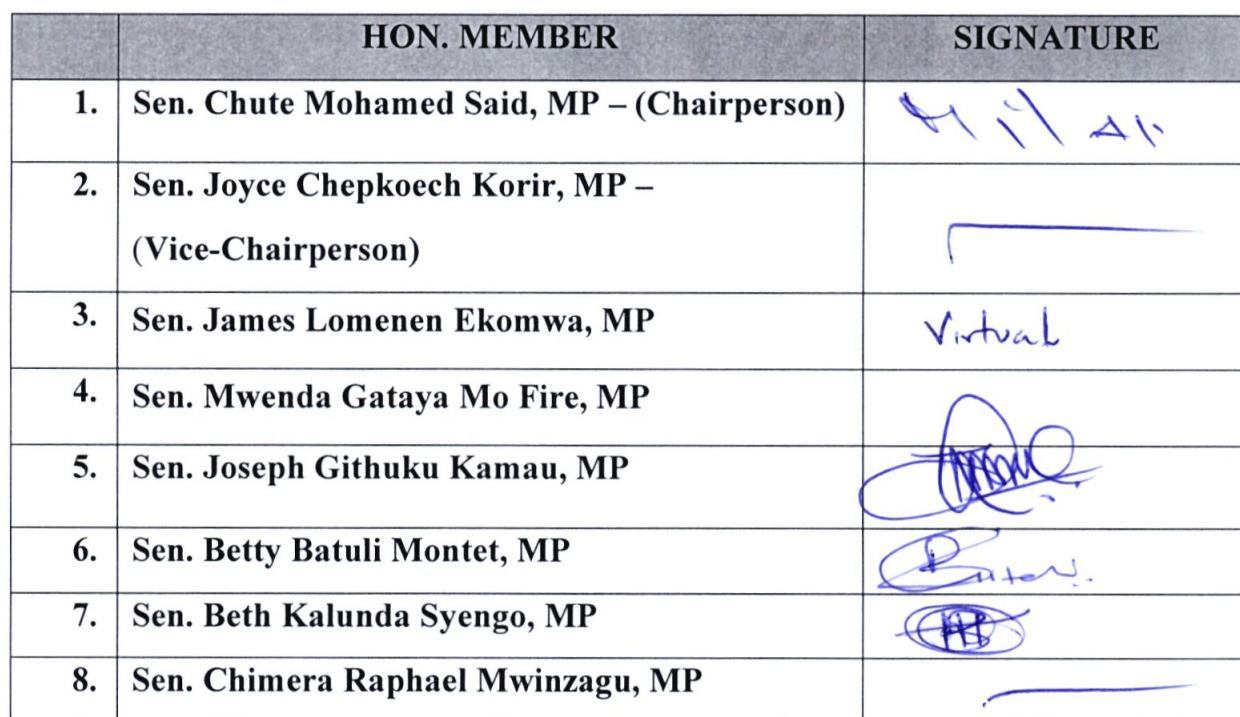 HON. MEMBER SIGNATURE
1. Sen. Chute Mohamed Said, MP – (Chairperson)
2. Sen. Joyce Chepkoech Korir, MP –
(Vice-Chairperson)
3. Sen. James Lomenen Ekomwa, MP Virtual
4. Sen. Mwenda Gataya Mo Fire, MP
5. Sen. Joseph Githuku Kamau, MP
6. Sen. Betty Batuli Montet, MP
7. Sen. Beth Kalunda Syengo, MP
8. Sen. Chimera Raphael Mwinzagu, MP